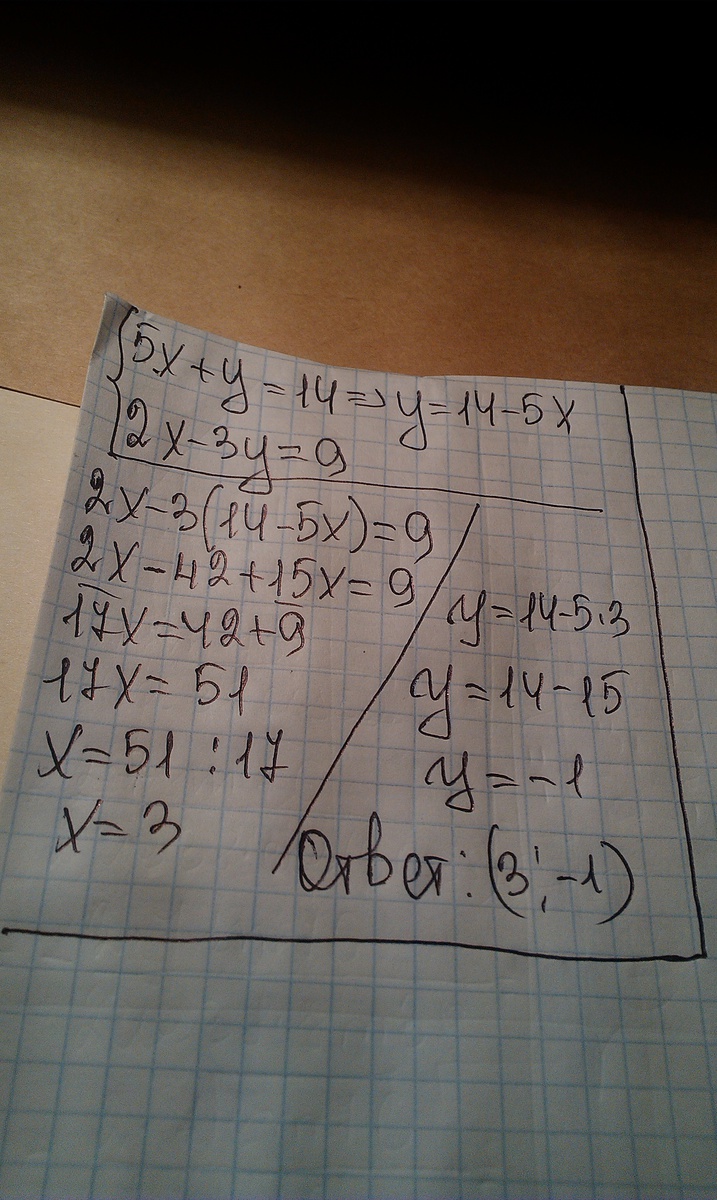 5x+y=14=>y=14-5x
2x-3y=9
2x-3(14-5x)=9
2x-42+15x=9
17x=42+9
17x=51
x=51:17
x=3
y=14-5·3
y=14-15
y=-1
Ответ: (3;-1)